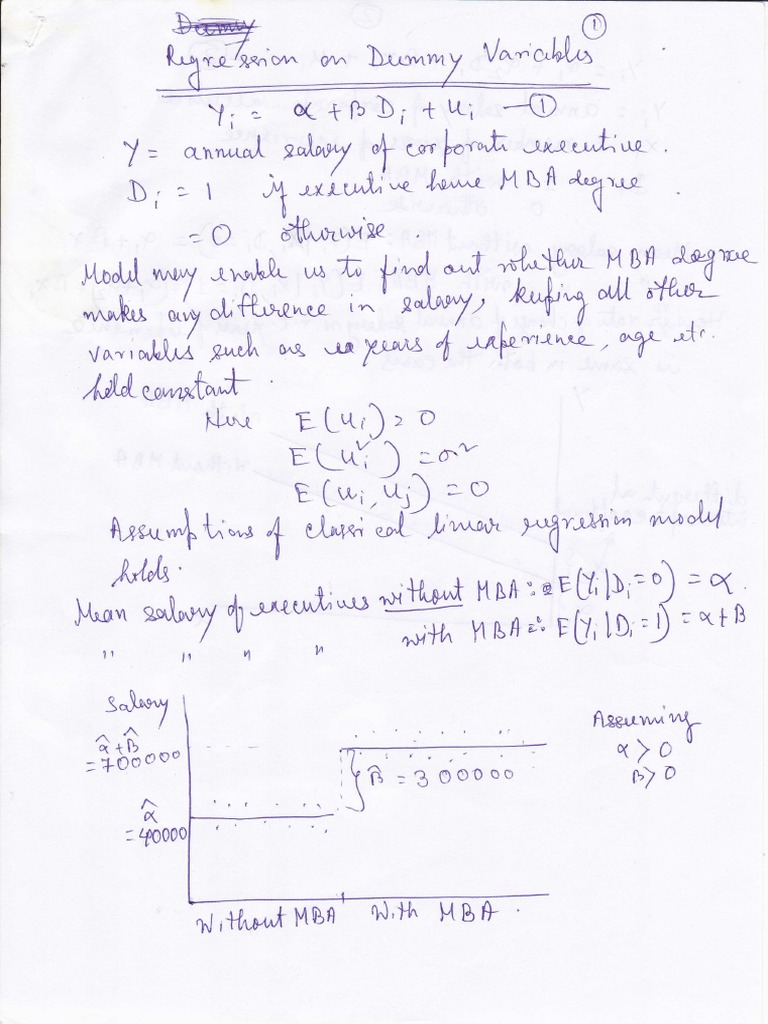 ①
Dummy
Regression on Dummy Variables
Yi = α + β Di + ui — ①
Y = annual salary of corporate executive.
Di = 1 if executive have MBA degree
= 0 otherwise.
Model may enable us to find out whether MBA degree
makes any difference in salary, keeping all other
variables such as years of experience, age etc.
held constant.
Here E(ui) = 0
E(ui²) = σ²
E(ui, uj) = 0
Assumptions of classical linear regression model
holds.
Mean salary of executives without MBA: E(Yi|Di=0) = α.
" " " " with MBA: E(Yi|Di=1) = α+β
Salary
α̂+β̂
=700000
β̂ = 300000
α̂
=40000
Assuming
α > 0
β > 0
Without MBA With MBA.